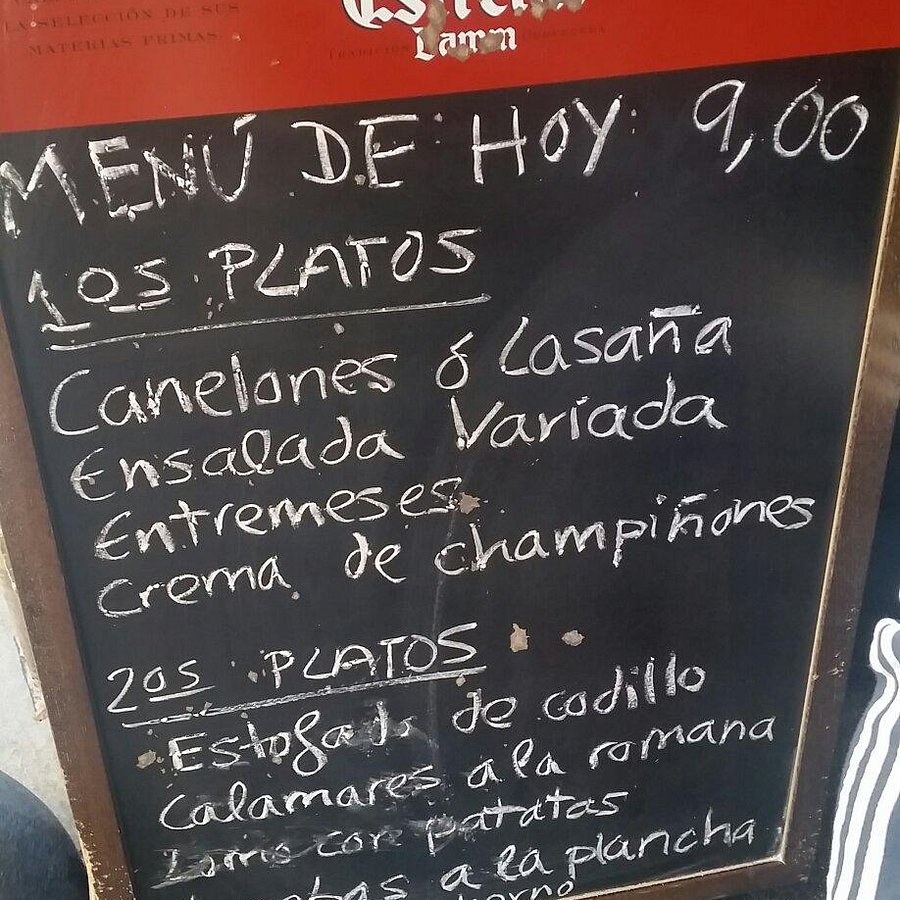 LA SELECCIÓN DE SUS
MATERIAS PRIMAS.
Estrella
Damm
MENÚ DE HOY 9,00
1os PLATOS
Canelones ó Lasaña
Ensalada Variada
Entremeses
Crema de champiñones
2os PLATOS
Estofado de codillo
Calamares a la romana
Lomo con patatas
a la plancha
horno